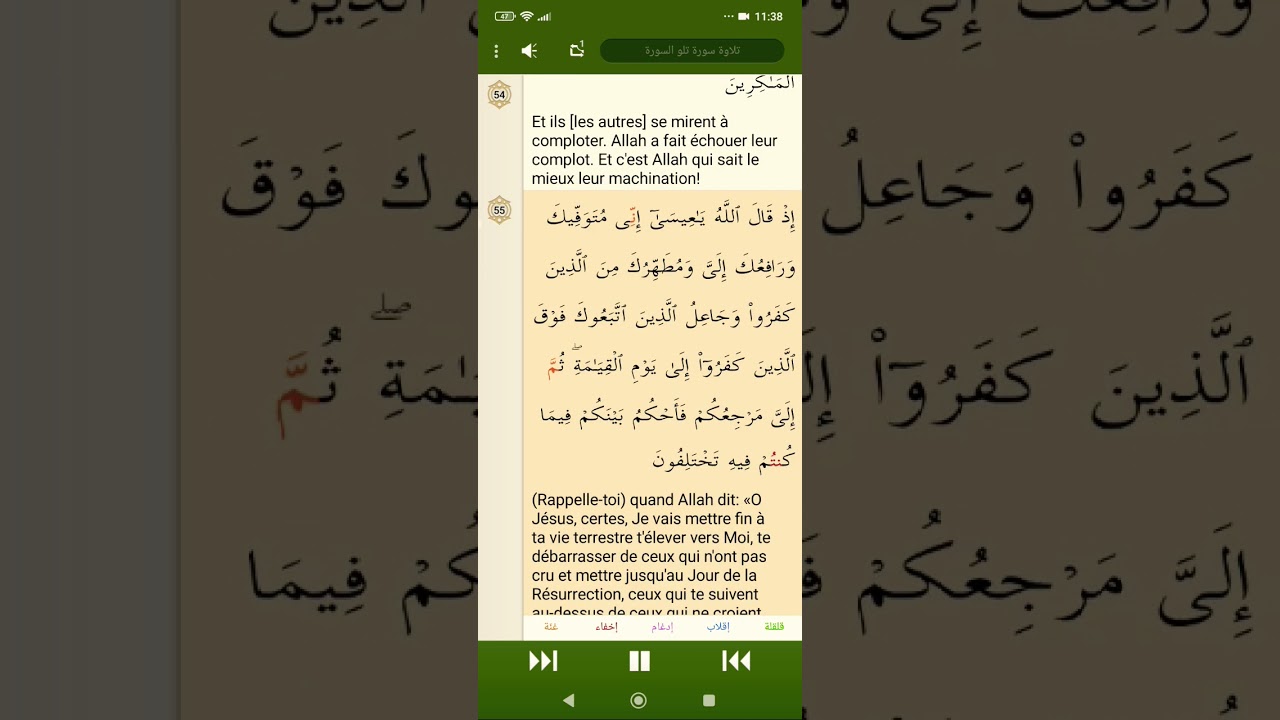 47
11:38
تلاوة سورة تلو السورة
1
54
ٱلۡمَـٰكِرِينَ
Et ils [les autres] se mirent à
comploter. Allah a fait échouer leur
complot. Et c'est Allah qui sait le
mieux leur machination!
55
إِذۡ قَالَ ٱللَّهُ يَـٰعِيسَىٰٓ إِنِّى مُتَوَفِّيكَ
وَرَافِعُكَ إِلَىَّ وَمُطَهِّرُكَ مِنَ ٱلَّذِينَ
كَفَرُوا۟ وَجَاعِلُ ٱلَّذِينَ ٱتَّبَعُوكَ فَوۡقَ
ٱلَّذِينَ كَفَرُوٓا۟ إِلَىٰ يَوۡمِ ٱلۡقِيَـٰمَةِۖ ثُمَّ
إِلَىَّ مَرۡجِعُكُمۡ فَأَحۡكُمُ بَيۡنَكُمۡ فِيمَا
كُنتُمۡ فِيهِ تَخۡتَلِفُونَ
(Rappelle-toi) quand Allah dit: «O
Jésus, certes, Je vais mettre fin à
ta vie terrestre t'élever vers Moi, te
débarrasser de ceux qui n'ont pas
cru et mettre jusqu'au Jour de la
Résurrection, ceux qui te suivent
au-dessus de ceux qui ne croient
قلقلة إقلاب إدغام إخفاء غنة